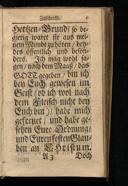 Zuschrifft.
Hertzen-Grund; so be-
gierig waret ihr aus mei-
nem Munde zu hören / bey-
des öffentlich und beson-
ders. Ich mag wohl sa-
gen / nach dem Maaß / das
GOTT gegeben / bin ich
bey Euch gewesen im
Geist / ob ich wol nach
dem Fleisch nicht bey
Euch bin / habe mich
gefreuet / und habe ge-
sehen Eure Ordnung /
und Euren festen Glau-
ben an Christum.
A 3 Doch